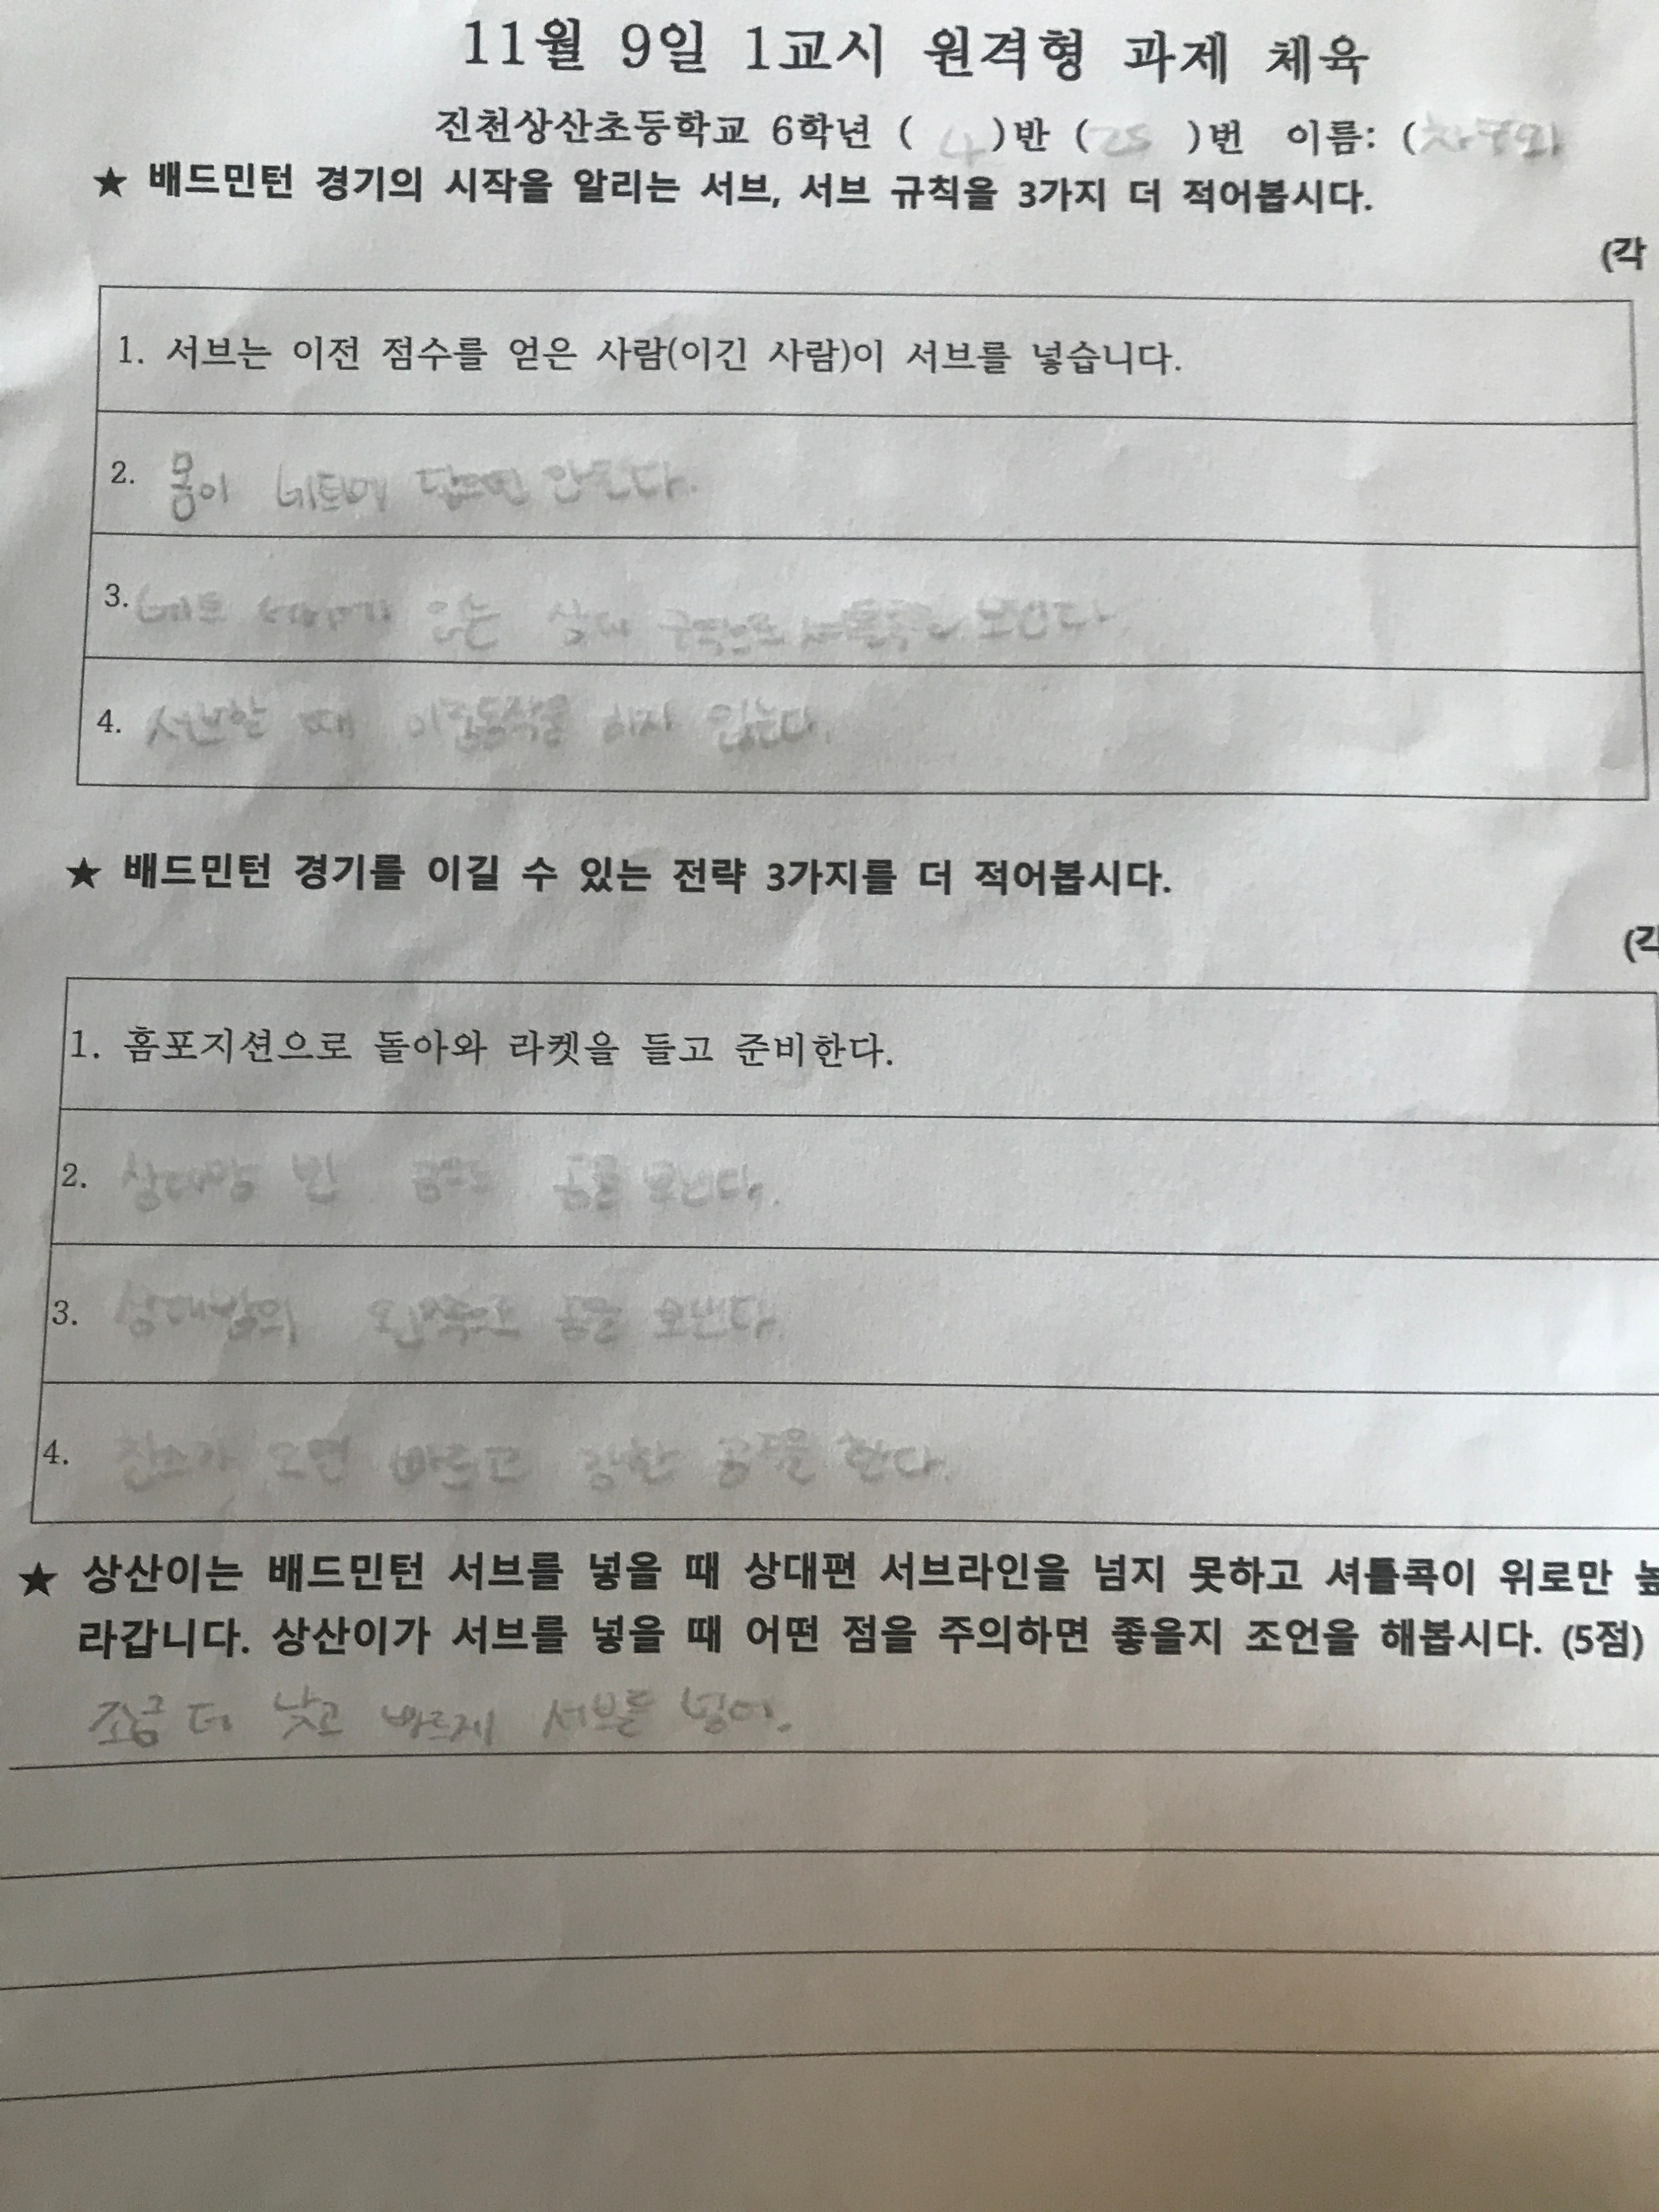 11월 9일 1교시 원격형 과제 체육
진천상산초등학교 6학년 ( 4 )반 ( 25 )번 이름: (
★ 배드민턴 경기의 시작을 알리는 서브, 서브 규칙을 3가지 더 적어봅시다.
(각
1. 서브는 이전 점수를 얻은 사람(이긴 사람)이 서브를 넣습니다.
2. 몸이 네트에 닿으면 안된다.
3. 보낸다.
4. 서브할 때 이중동작을 하지 않는다.
★ 배드민턴 경기를 이길 수 있는 전략 3가지를 더 적어봅시다.
(각
1. 홈포지션으로 돌아와 라켓을 들고 준비한다.
2. 상대방 빈 공을 보낸다.
3. 상대방의 왼쪽으로 공을 보낸다.
4. 찬스가 오면 빠르고 강한 공격을 한다.
★ 상산이는 배드민턴 서브를 넣을 때 상대편 서브라인을 넘지 못하고 셔틀콕이 위로만 높
라갑니다. 상산이가 서브를 넣을 때 어떤 점을 주의하면 좋을지 조언을 해봅시다. (5점)
조금 더 낮고 빠르게 서브를 넣어.